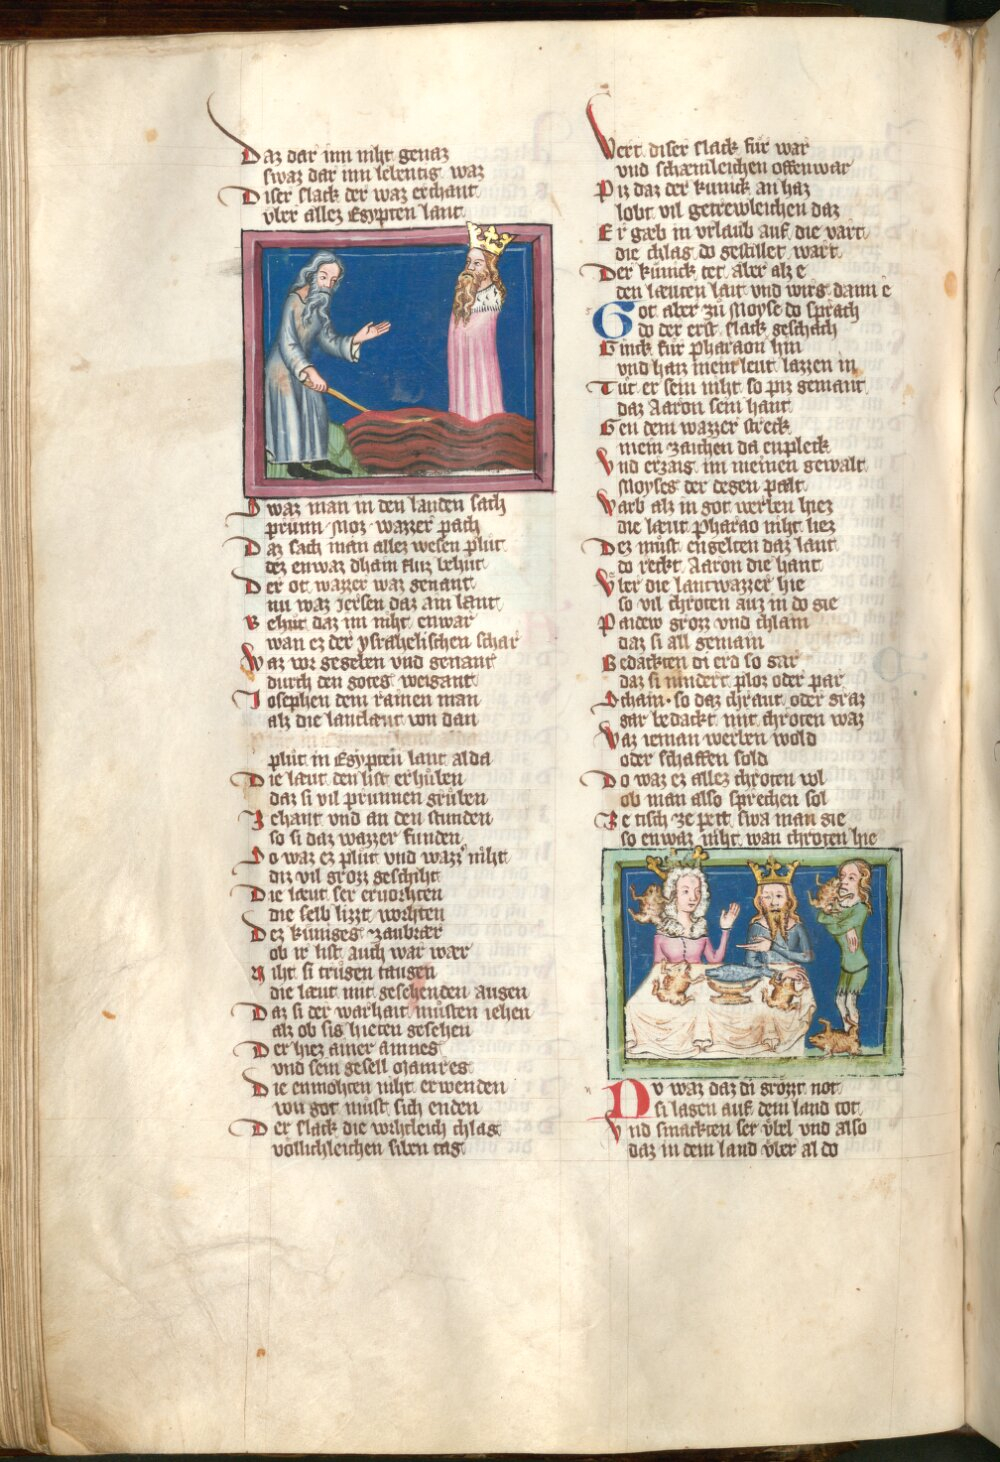 Daz dar inn niht genaz
swaz dar inn lebentig waz
Diser slack der waz erchant
vber allez Egypten lant
Swaz man in den landen sach
prunn moz wazzer pach
Daz sach man allez wesen plůt
dez enwaz dhain fluz behůt
Der ot wazzer waz genant
nu waz Jersen daz ain lant
Behůt daz im niht enwar
wan ez der ysrahelischen schar
Waz vor gegeben vnd genant
durch den gotes weigant
Josephen dem rainen man
alz die lantlæut von dan
plůt in Egypten lant alda
Die læut den list erhůben
daz si vil prunnen grůben
Zehant vnd an den stunden
so si daz wazzer funden
So waz ez plůt vnd wazzer niht
diz vil grozz geschiht
Die læut ser ervorhten
die selb lizzt worhten
Dez kuniges zaubrær
ob ir list auch war wær
Niht si trůgen taugen
die læut mit gesehenden augen
Daz si der warhait můsten iehen
alz ob sis hieten gesehen
Der hiez ainer Amnes
vnd sein gesell Mamres
Die enmohten niht erwenden
wu got můst sich enden
Der slack die wihtleich chlag
vollichleichen siben tag
Wert diser slack fur war
vnd schæmleichen offenwar
Piz daz der kunick an haz
lobt vil getrewleichen daz
Er gæb in vrlaub auf die vart
die chlag do gestillet wart
Der kůnick tet aber alz e
den læuten lait vnd wirs dann e
Got aber zů Moyse do sprach
do der erst slack geschach
Ginck fur Pharaon hin
vnd haiz mein leut lazzen in
Tůt er sein niht so piz gemant
daz Aaron sein hant
Gen dem wazzer streck
mein zaichen da enpleck
Vnd erzaig im meinen gewalt
Moyses der degen palt
Warb alz in got werben hiez
die læut Pharao niht liez
Dez můst engelten daz lant
do reckt Aaron die hant
Vber die lantwazzer hie
so vil chroten auz in do gie
Paidew grozz vnd chlain
daz si all gemain
Bedackten di erd so gar
daz si nindert ploz oder par
Schain so daz chraut oder graz
gar bedackt mit chroten waz
Waz ieman werben wold
oder schaffen sold
Do waz ez allez chroten vol
ob man also sprechen sol
Ze tisch ze pett swa man gie
so enwaz niht wan chroten hie
Dv waz daz di grozzt not
si lagen auf dem land tot
Vnd smackten ser vbel vnd also
daz in dem land vber al do